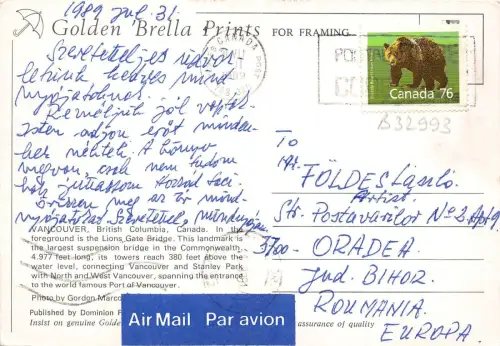 1989 jul. 31.
Golden Brella Prints FOR FRAMING
Szeretetteljes üdvöz-
letünk
mind-
nyájatoknak.
Reméljük jól
adjon erőt minden-
hez néktek. A könyv
megvan, csak nem tudom
hogy juttassam hozzád Laci.
Őrizzen meg az Úr mind-
nyájatokat. Szeretettel,
CANADA
Canada 76
B32993
To
Mr. FÖLDES László.
Artist.
Str. Postavarilor No 2. Ap 19
3700- ORADEA
Jud. BIHOR.
ROUMANIA.
EUROPA.
VANCOUVER, British Columbia, Canada. In the
foreground is the Lions Gate Bridge. This landmark is
the largest suspension bridge in the Commonwealth,
4,977 feet long, its towers reach 380 feet above the
water level, connecting Vancouver and Stanley Park
with North and West Vancouver, spanning the entrance
to the world famous Port of Vancouver.
Photo by Gordon
Published by Dominion
Insist on genuine Golden
assurance of quality
Air Mail Par avion